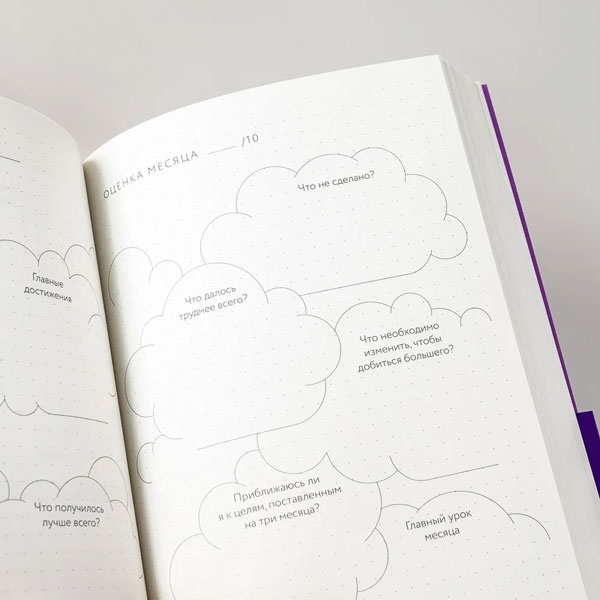 Главные
достижения
Что получилось
лучше всего?
ОЦЕНКА МЕСЯЦА ____ /10
Что не сделано?
Что далось
труднее всего?
Что необходимо
изменить, чтобы
добиться большего?
Приближаюсь ли
я к целям, поставленным
на три месяца?
Главный урок
месяца